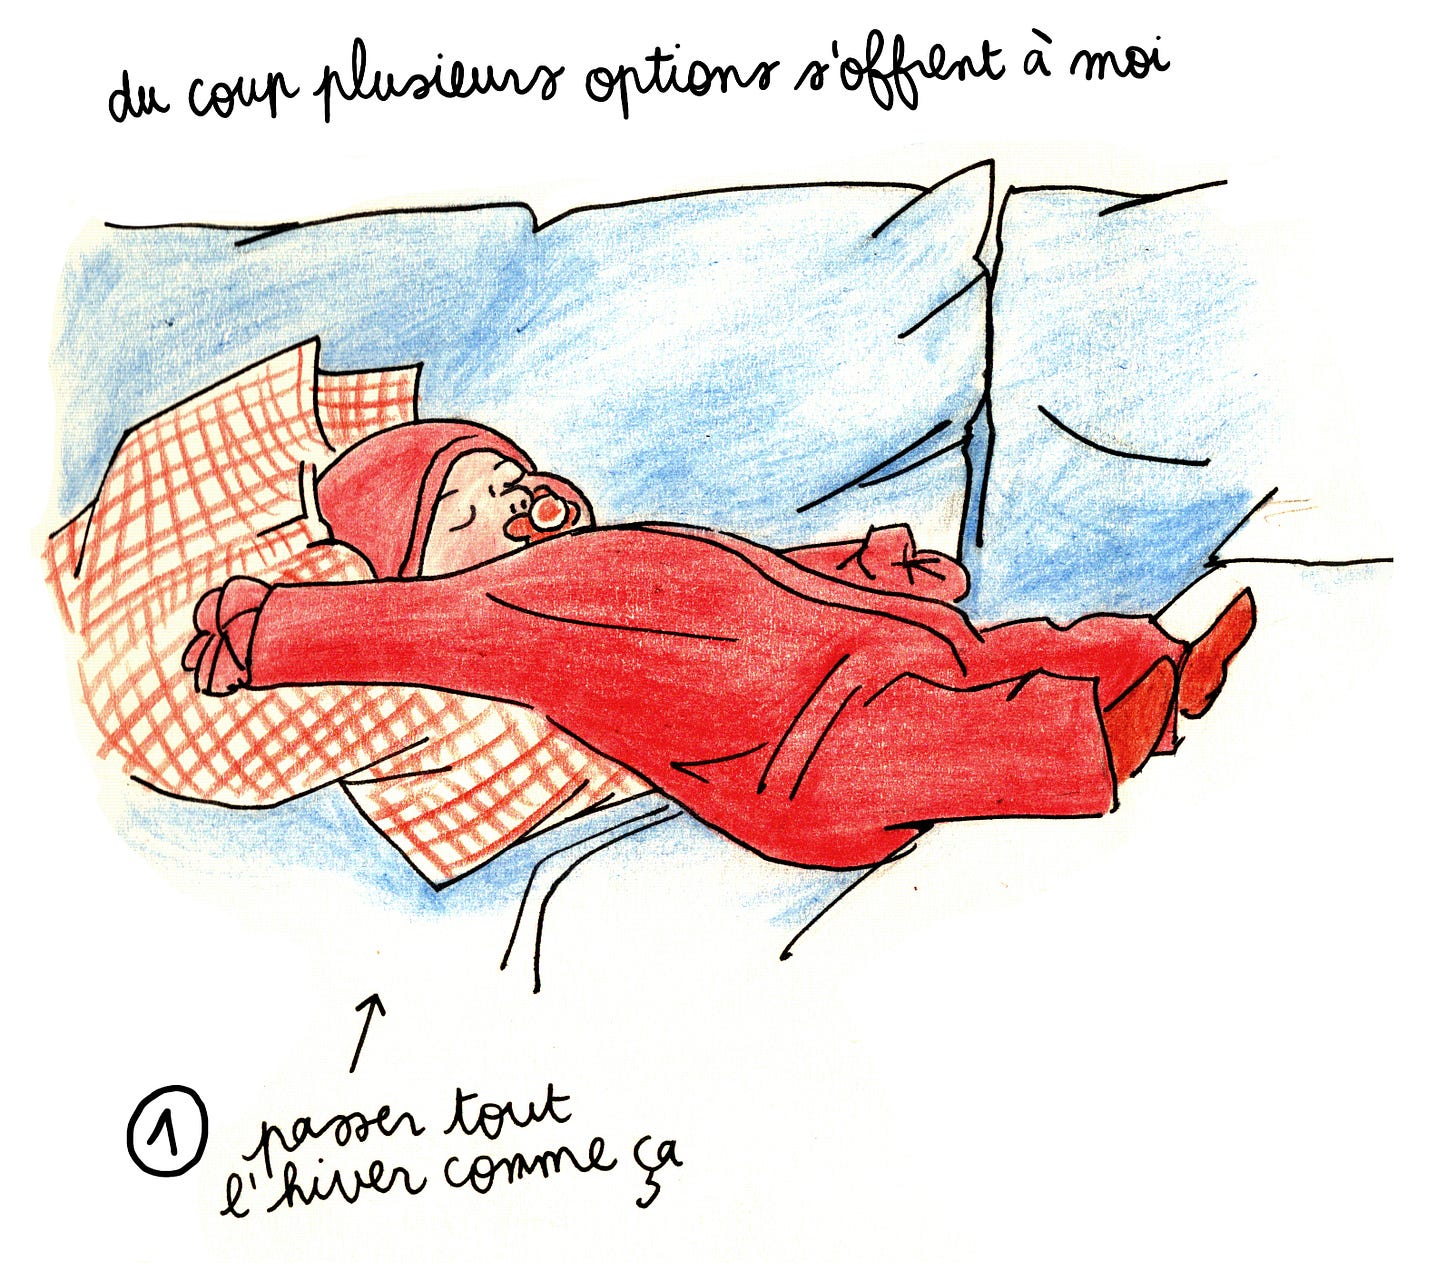 du coup plusieurs options s'offrent à moi
1 passer tout
l'hiver comme ça